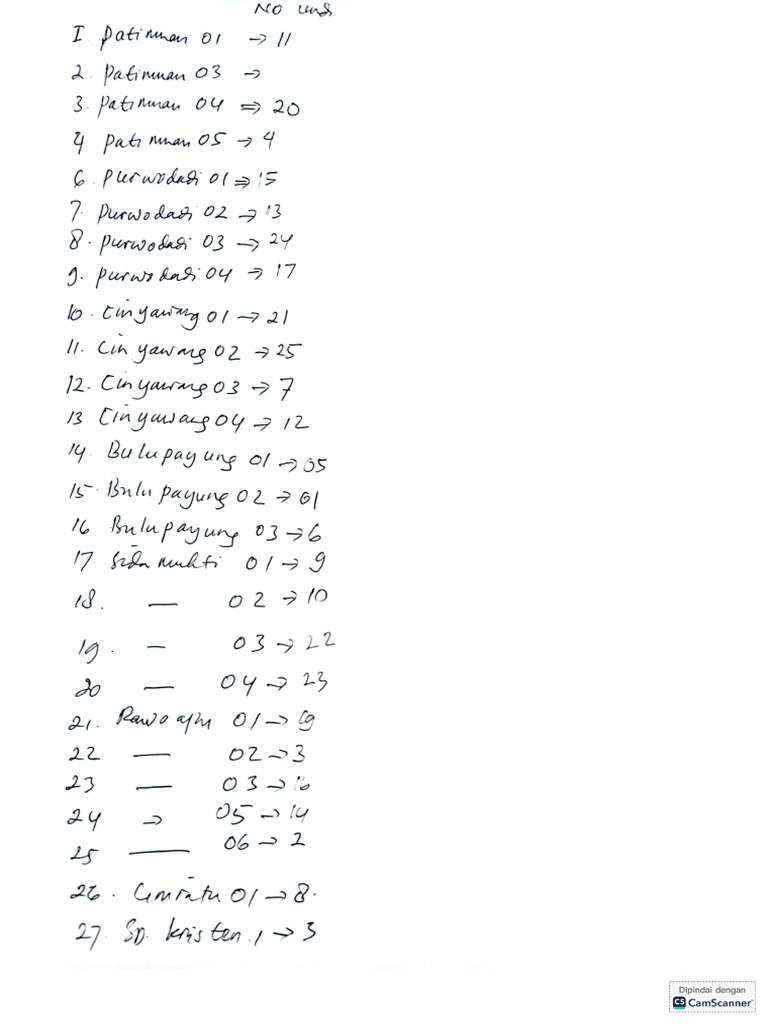 No und
1. Patimuan 01 → 11
2. Patimuan 03 →
3. Patimuan 04 ⇒ 20
4 Patimuan 05 → 4
6. Purwodadi 01 ⇒ 15
7. Purwodadi 02 → 13
8. Purwodadi 03 → 24
9. Purwodadi 04 → 17
10. Cinyawang 01 → 21
11. Cinyawang 02 → 25
12. Cinyawang 03 → 7
13 Cinyawang 04 → 12
14. Bulupayung 01 → 05
15. Bulupayung 02 → 01
16 Bulupayung 03 → 6
17 Sidamukti 01 → 9
18. — 02 → 10
19. — 03 → 22
20 — 04 → 23
21. Rawaapu 01 → 19
22 — 02 → 3
23 — 03 → 16
24 → 05 → 14
25 — 06 → 2
26. 01 → 8.
27. SD. Kristen 1 → 3
Dipindai dengan
CS CamScanner